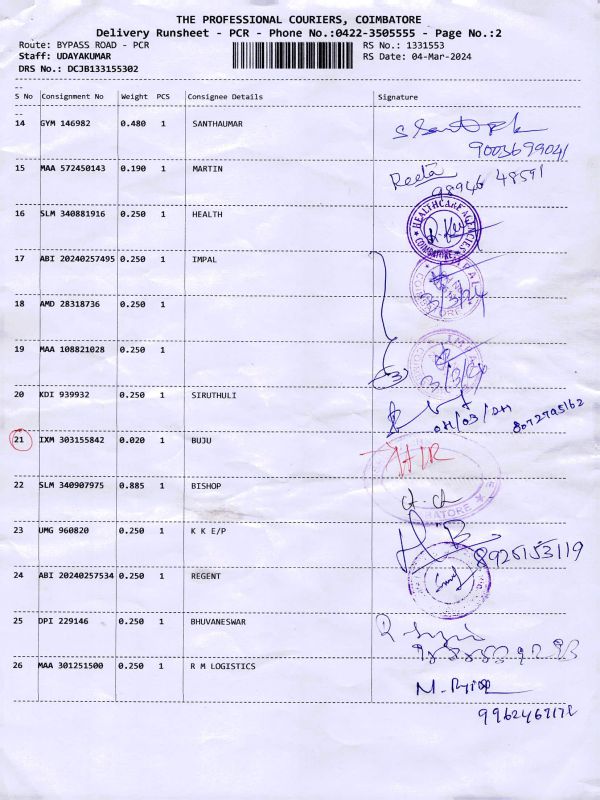 THE PROFESSIONAL COURIERS, COIMBATORE
Delivery Runsheet - PCR - Phone No.:0422-3505555 - Page No.:2
Route: BYPASS ROAD - PCR RS No.: 1331553
Staff: UDAYAKUMAR RS Date: 04-Mar-2024
DRS No.: DCJB133155302
S No Consignment No Weight PCS Consignee Details Signature
14 GYM 146982 0.480 1 SANTHAUMAR
9003699041
15 MAA 572450143 0.190 1 MARTIN Reeta 98946 48591
16 SLM 340881916 0.250 1 HEALTH HEALTHCARE AGENCIES COIMBATORE
17 ABI 20240257495 0.250 1 IMPAL
18 AMD 28318736 0.250 1
19 MAA 108821028 0.250 1
20 KDI 939932 0.250 1 SIRUTHULI
8072795162
21 IXM 303155842 0.020 1 BUJU
22 SLM 340907975 0.885 1 BISHOP
23 UMG 960820 0.250 1 K K E/P
8925153119
24 ABI 20240257534 0.250 1 REGENT
25 DPI 229146 0.250 1 BHUVANESWAR
26 MAA 301251500 0.250 1 R M LOGISTICS